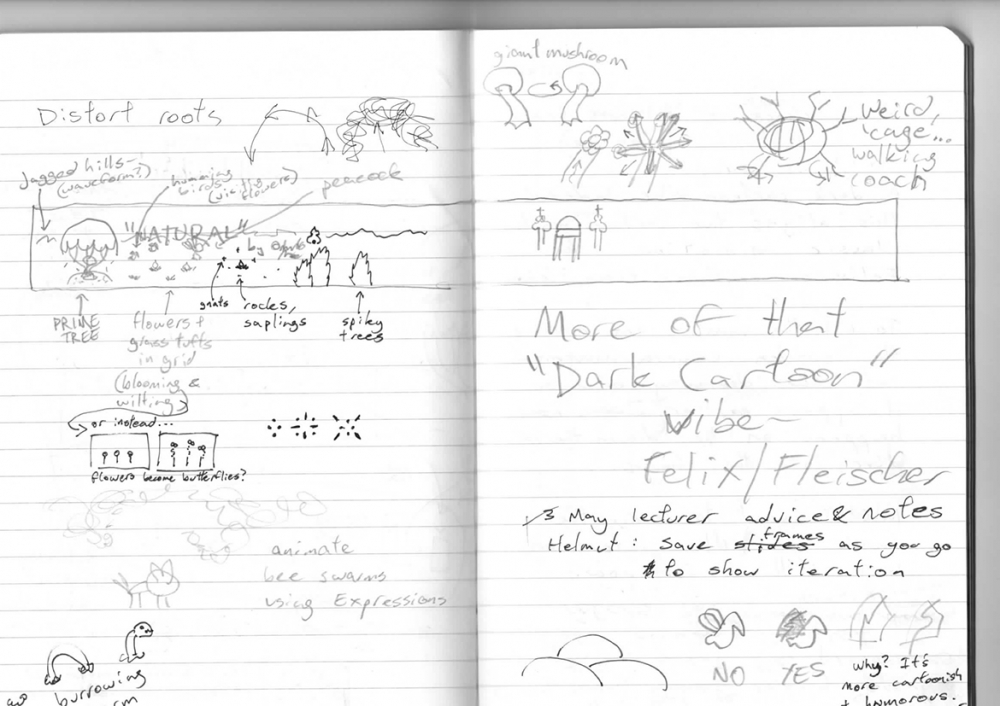 Distort roots
Jagged hills-
(waveform?)
humming
birds-
(visiting
flowers)
peacock
"NATURAL"
gnats
rocks,
saplings
spikey
trees
PRIME
TREE
flowers +
grass tufts
in grid
(blooming &
wilting)
or instead...
flowers become butterflies?
animate
bee swarms
using Expressions
burrowing
giant mushroom
Weird,
'cage...
walking
coach
More of that
"Dark Cartoon"
vibe-
Felix/Fleischer
3 May lecturer advice & notes
Helmut: Save slides frames as you go
to show iteration
NO YES
why? It's
more cartoonish
+ humorous.